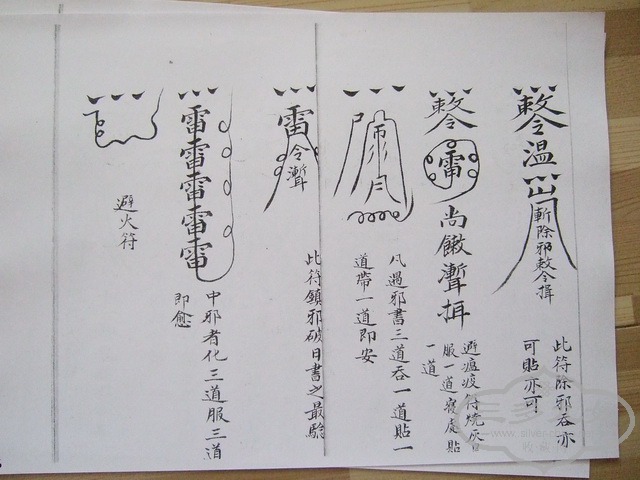 敕令
溫
斬除邪敕令揖
此符除邪吞亦
可貼亦可
敕令
雷
尚
避瘟疫符燒灰
服一道寢處貼
一道
凡遇邪書三道吞一道貼一
道帶一道即安
雷
令
此符鎮邪破日書之最驗
雷
雷
雷
雷
雷
中邪者化三道服三道
即愈
避火符